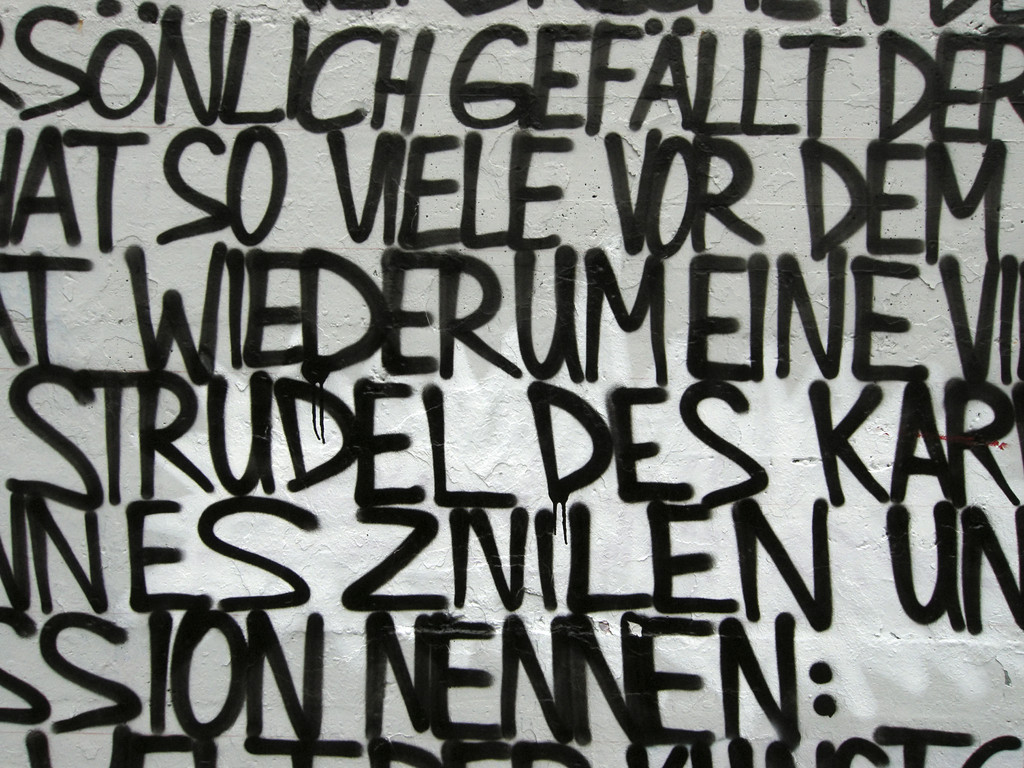 SÖNLICH GEFÄLLT DER
HAT SO VIELE VOR DEM
T WIEDERUM EINE VI
STRUDEL DES KAR
NN ES ZNILEN UN
SSION NENNEN:
WELT DER KUNST